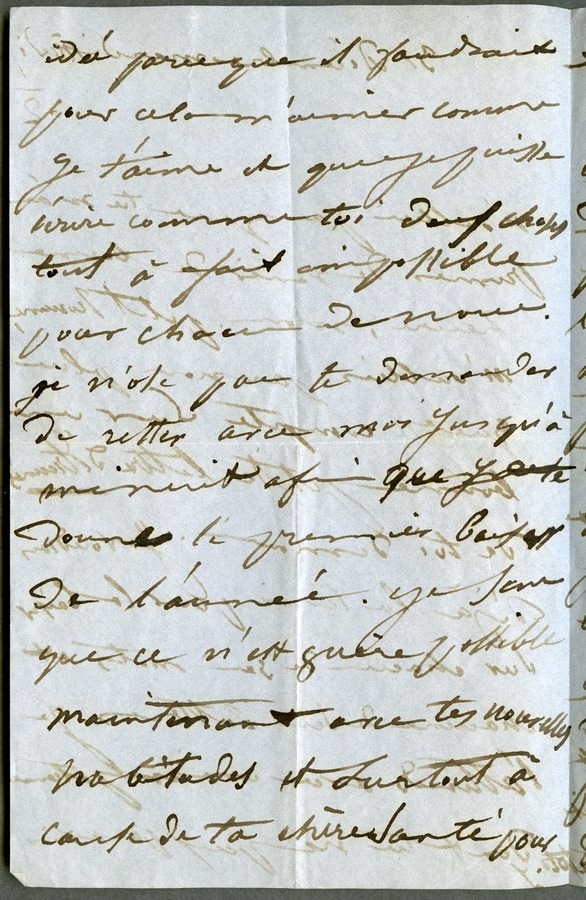 idé parce que il faudrait
pour cela m'aimer comme
Je t'aime et que je puisse
écrire comme toi deux choses
tout à fait impossible
pour chacun de nous.
je n'ose pas te demander
de rester avec moi jusqu'à
minuit afin que je te
donne le premier baiser
de l'année. je sens
que ce n'est guère possible
maintenant avec tes nouvelles
habitudes et surtout à
cause de ta chère santé pour